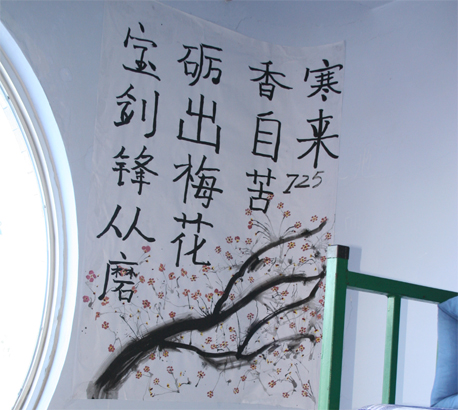 宝剑锋从磨
砺出梅花
香自苦
寒来
725